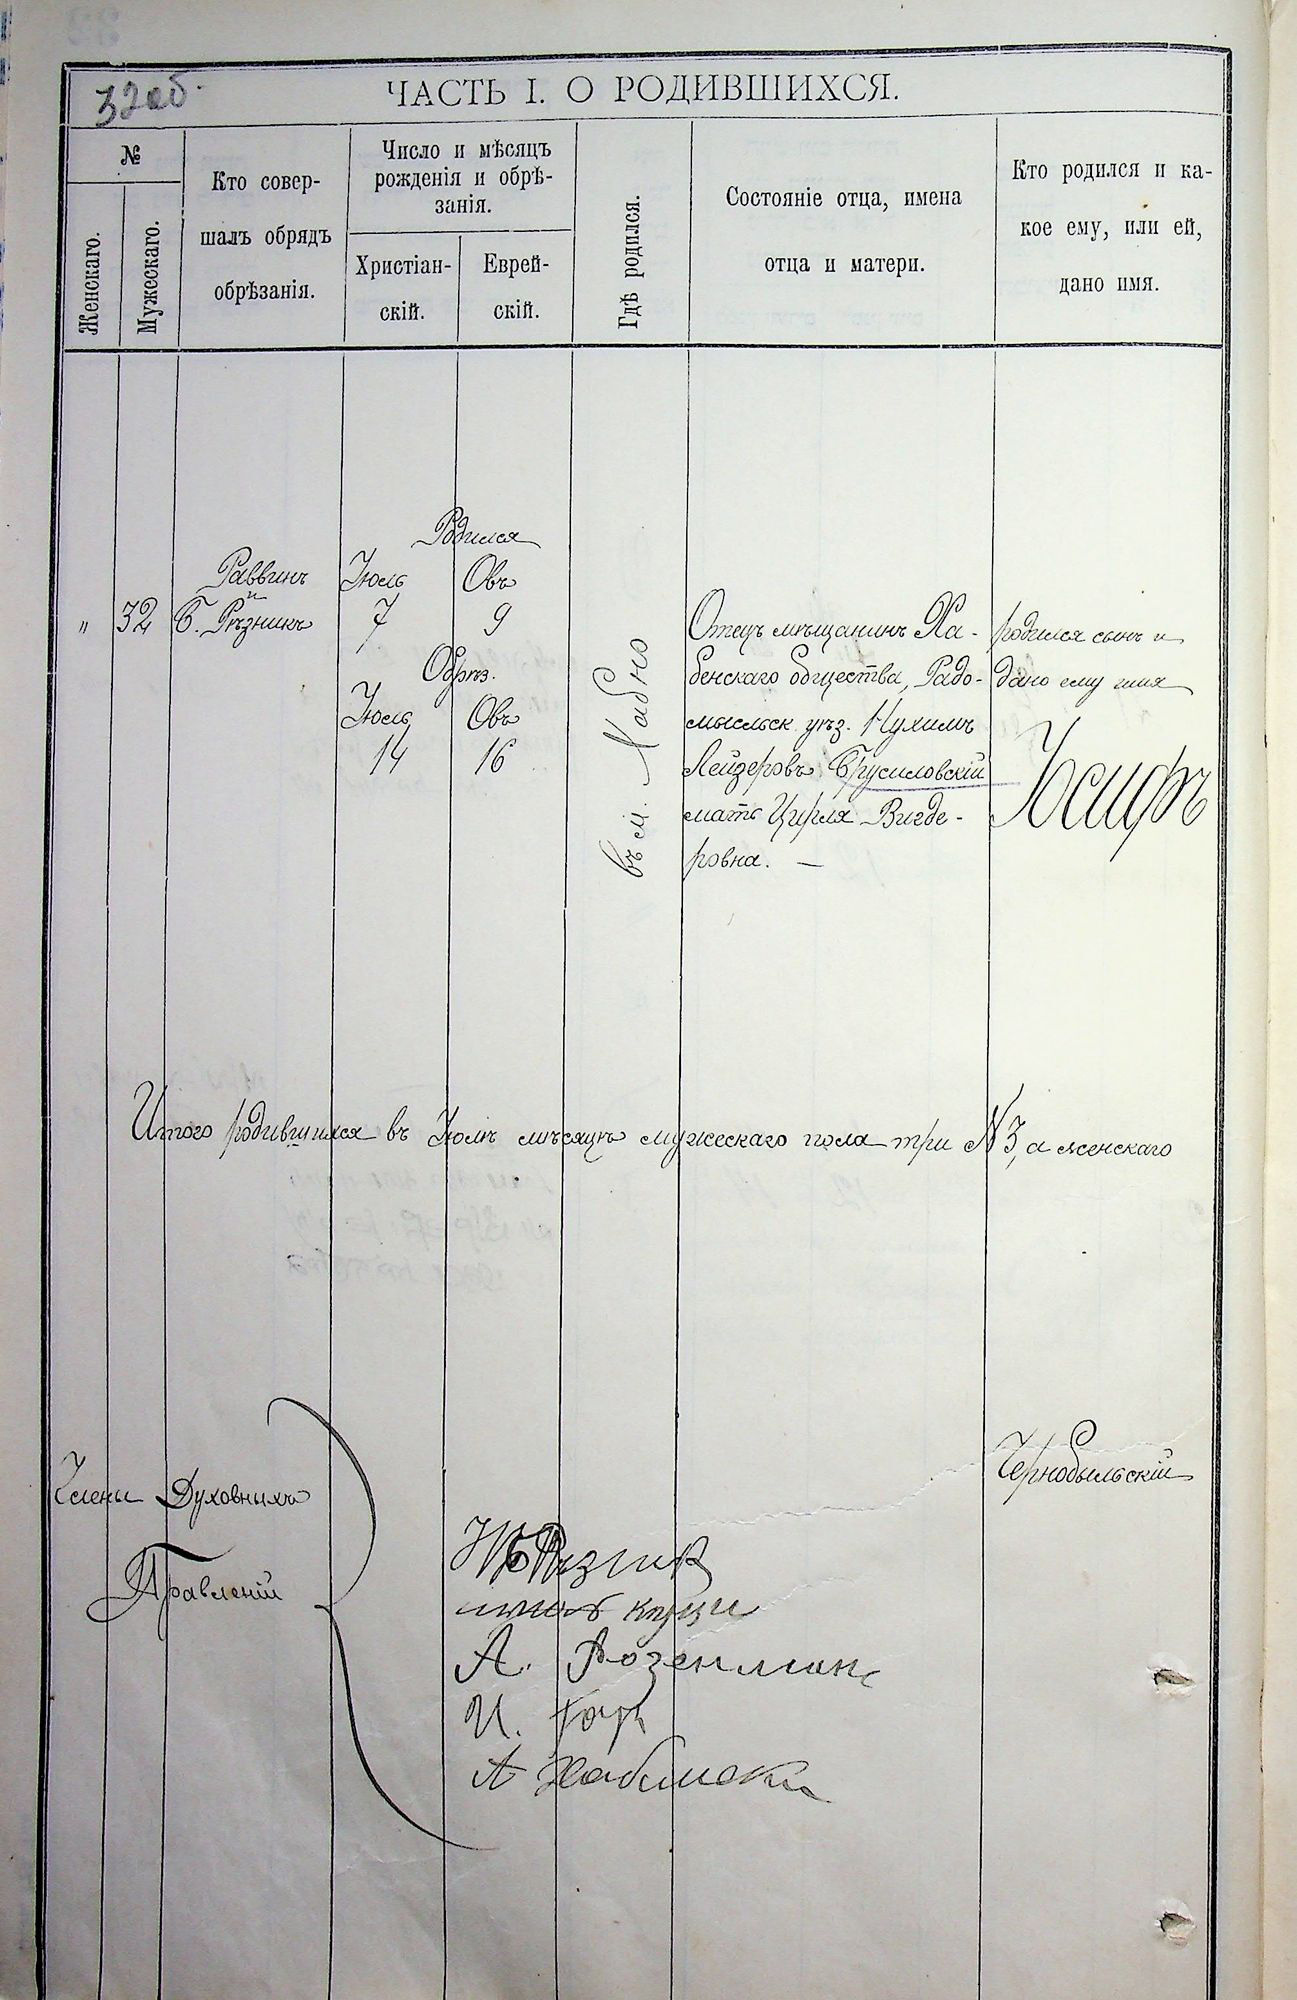 32об.
ЧАСТЬ I. О РОДИВШИХСЯ.
№
Женскаго.
Мужескаго.
Кто совер-
шалъ обрядъ
обрѣзанія.
Число и мѣсяцъ
рожденія и обрѣ-
занія.
Христіан-
скій.
Еврей-
скій.
Гдѣ родился.
Состояніе отца, имена
отца и матери.
Кто родился и ка-
кое ему, или ей,
дано имя.
"
32
Раввинъ
и
Б. Рѣзникъ
Родился
Іюль Овъ
7 9
Обрѣз.
Іюль Овъ
14 16
въ м. Хабно
Отецъ мѣщанинъ Ха-
бенскаго общества, Радо-
мысльск. уѣз. Нухимъ
Лейзеровъ Брусиловскій
мать Цирля Вигде-
ровна. —
родился сынъ и
дано ему имя
Іосифъ
Итого родившихся въ Іюлѣ мѣсяцѣ мужескаго пола три N 3, а женскаго
Члены Духовныхъ
Правленій
Чернобыльскій
Рѣзник
А. Розенман
И.
А